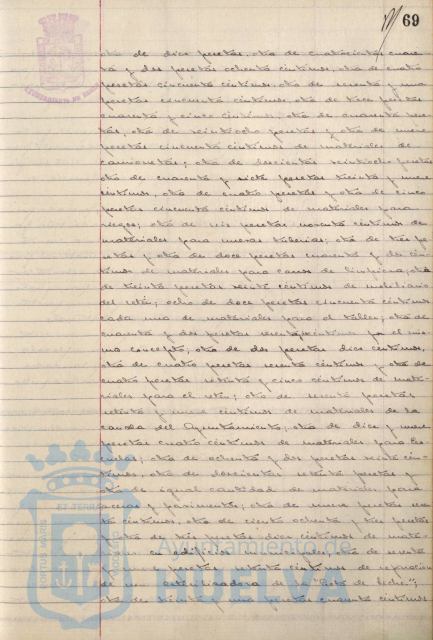 69
otra de diez pesetas, otra de cuatrocientas cuaren-
ta y dos pesetas ochenta céntimos, otra de cuatro
pesetas cincuenta céntimos, otra de sesenta y una
pesetas cincuenta céntimos, otra de trece pesetas
cuarenta y cinco céntimos, otra de cuarenta pese-
tas, otra de veintiocho pesetas y otra de nueve
pesetas cincuenta céntimos de materiales de
camionetas; otra de doscientas veintiocho pesetas
otra de cuarenta y siete pesetas treinta y nueve
céntimos, otra de cuatro pesetas y otra de cinco
pesetas cincuenta céntimos de materiales para
riegos; otra de seis pesetas noventa céntimos de
materiales para nuevas tuberías; otra de tres pe-
setas y otra de doce pesetas cuarenta y dos cén-
timos de materiales para carros de limpieza; otra
de treinta pesetas veinte céntimos de mobiliario
del reten; ocho de doce pesetas cincuenta céntimos
cada una de materiales para el taller; otra de
cuarenta y dos pesetas céntimos por el mis-
mo concepto; otra de dos pesetas diez céntimos,
otra de cuatro pesetas sesenta céntimos y otra de
cuatro pesetas setenta y cinco céntimos de mate-
riales para el reten; otra de sesenta pesetas
setenta y nueve céntimos de materiales de la
del Ayuntamiento; otra de diez y nueve
pesetas cuatro céntimos de materiales para Es-
cuelas; otra de ochenta y dos pesetas veinte cén-
timos, otra de doscientas setenta pesetas y
otra de igual cantidad de materiales para
aceras y pavimentos; otra de nueve pesetas
céntimos, otra de ciento ochenta y tres pesetas
y otra de tres pesetas diez céntimos de mate-
riales en edificios municipales; otra de
y pesetas setenta céntimos de reparación
de una esterilizadora de la "Gota de leche";
otra de treinta y una pesetas cuarenta céntimos
Ayuntamiento de
HUELVA
PORTUS MARIS
ET TERRAE
CUSTODIA